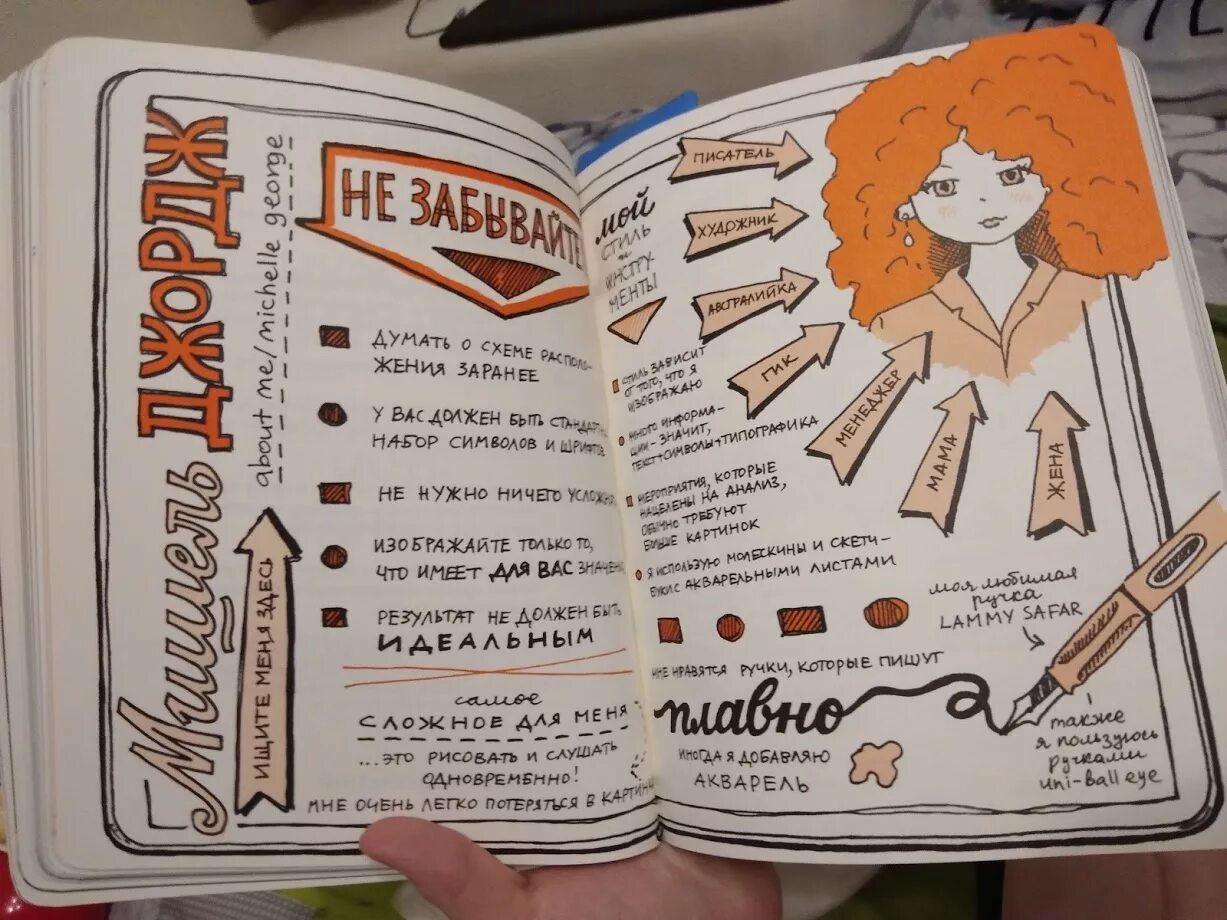 Мишель
ДЖОРДЖ
about me/michelle george
ИЩИТЕ МЕНЯ ЗДЕСЬ
НЕ ЗАБЫВАЙТЕ!
ДУМАТЬ О СХЕМЕ РАСПОЛО-
ЖЕНИЯ ЗАРАНЕЕ
У ВАС ДОЛЖЕН БЫТЬ
НАБОР СИМВОЛОВ И ШРИФТОВ
НЕ НУЖНО НИЧЕГО
ИЗОБРАЖАЙТЕ ТОЛЬКО ТО,
ЧТО ИМЕЕТ ДЛЯ ВАС
РЕЗУЛЬТАТ НЕ ДОЛЖЕН БЫТЬ
ИДЕАЛЬНЫМ
самое
СЛОЖНОЕ ДЛЯ МЕНЯ
...ЭТО РИСОВАТЬ И СЛУШАТЬ
ОДНОВРЕМЕННО!
МНЕ ОЧЕНЬ ЛЕГКО ПОТЕРЯТЬСЯ В
мой
СТИЛЬ
и
ИНСТРУ-
МЕНТЫ
ПИСАТЕЛЬ
ХУДОЖНИК
АВСТРАЛИЙКА
ГИК
МЕНЕДЖЕР
МАМА
ЖЕНА
СТИЛЬ ЗАВИСИТ
ОТ ТОГО, ЧТО Я
ИЗОБРАЖАЮ
МНОГО ИНФОРМА-
ЦИИ - ЗНАЧИТ,
ТЕКСТ+СИМВОЛЫ+ТИПОГРАФИКА
МЕРОПРИЯТИЯ, КОТОРЫЕ
НАЦЕЛЕНЫ НА АНАЛИЗ,
ОБЫЧНО ТРЕБУЮТ
БОЛЬШЕ КАРТИНОК
Я ИСПОЛЬЗУЮ МОЛЕСКИНЫ И СКЕТЧ-
БУКИ С АКВАРЕЛЬНЫМИ ЛИСТАМИ
МНЕ НРАВЯТСЯ РУЧКИ, КОТОРЫЕ ПИШУТ
плавно
ИНОГДА Я ДОБАВЛЯЮ
АКВАРЕЛЬ
моя любимая
ручка
LAMMY SAFAR
также
я пользуюсь
ручками
uni-ball eye